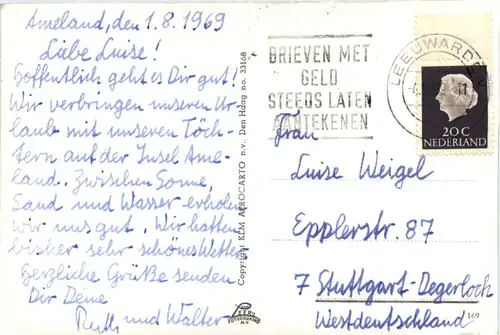 Ameland, den 1.8.1969
Liebe Luise!
Hoffentlich geht es Dir gut!
Wir verbringen unseren Ur-
laub mit unseren Töch-
tern auf der Insel Ame-
land. Zwischen Sonne,
Sand und Wasser erholen
wir uns gut. Wir hatten
bisher sehr schönes Wetter.
Herzliche Grüße senden
Dir Deine
Ruth und Walter
Copyright KLM AEROCARTO n.v. Den Haag no. 33168
BRIEVEN MET
GELD
STEEDS LATEN
AANTEKENEN
LEEUWARDEN
20 C
NEDERLAND
Frau
Luise Weigel
Epplerstr. 87
7 Stuttgart-Degerloch
Westdeutschland
169